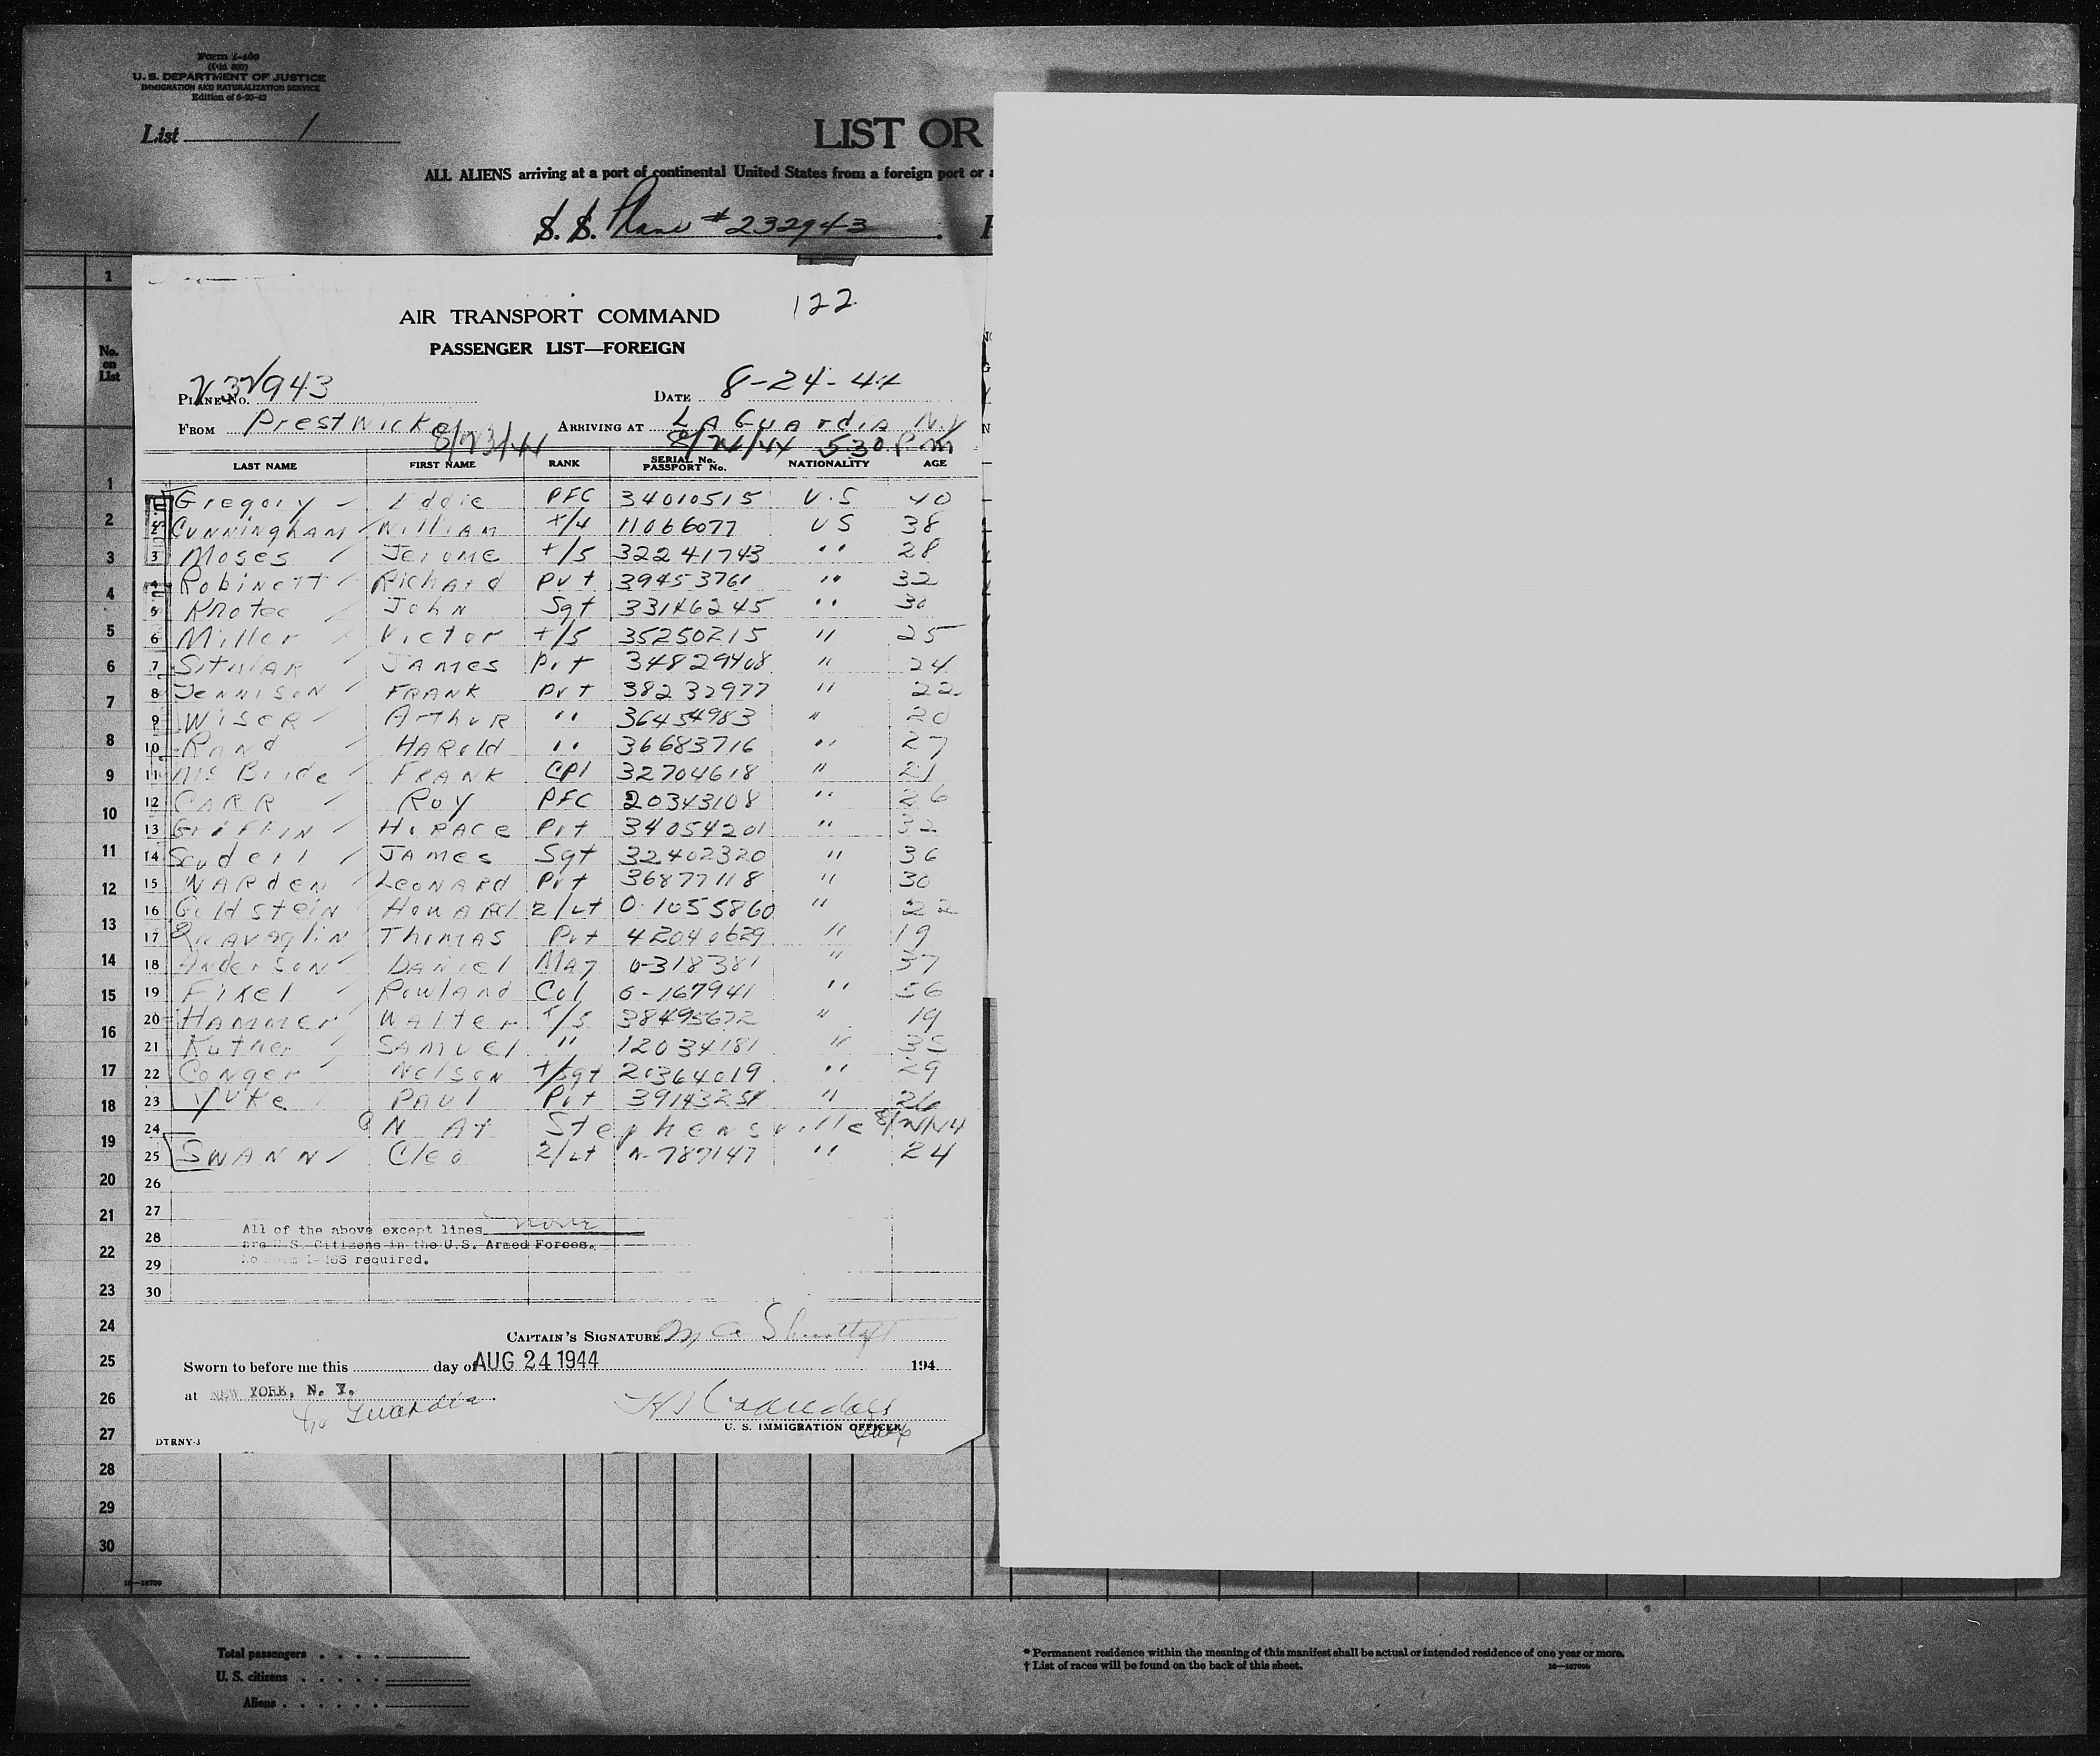 Form I-400
(Old 500)
U. S. DEPARTMENT OF JUSTICE
IMMIGRATION AND NATURALIZATION SERVICE
Edition of 6-20-42
List 1
LIST OR
ALL ALIENS arriving at a port of continental United States from a foreign port or a
S. S. Plane #232943
122
AIR TRANSPORT COMMAND
PASSENGER LIST—FOREIGN
PLANE No. 232943 DATE 8-24-44
FROM Prestwick ARRIVING AT LaGuardia N.Y
8/23/44 8/24/44 530 P.M
LAST NAME FIRST NAME RANK SERIAL No. PASSPORT No. NATIONALITY AGE
1 Gregory Eddie PFC 34010515 U.S 40
2 Cunningham William T/4 11066077 US 38
3 Moses Jerome T/5 32241743 " 28
4 Robinett Richard Pvt 39453761 " 32
5 Knotec John Sgt 33146245 " 30
6 Miller Victor T/5 35250215 " 25
7 Sitniak James Pvt 34829408 " 24
8 Jennison Frank Pvt 38232977 " 22
9 Wiser Arthur " 36454983 " 20
10 Rand Harold " 36683716 " 27
11 McBride Frank Cpl 32704618 " 21
12 Carr Roy PFC 20343108 " 26
13 Griffin Horace Pvt 34054201 " 32
14 James Sgt 32402320 " 36
15 Warden Leonard Pvt 36877118 " 30
16 Goldstein Howard 2/Lt O-1055860 " 22
17 Thomas Pvt 42040629 " 19
18 Anderson Daniel Maj O-318381 " 37
19 Fixel Rowland Col O-167941 " 56
20 Hammer Walter T/5 38495672 " 19
21 Kutner Samuel " 12034181 " 35
22 Conger Nelson T/Sgt 20364019 " 29
23 Yuke Paul Pvt 39143251 " 26
24 ON AT Stephensville 8/24/44
25 Swann Cleo 2/Lt N-787147 " 24
26
27
28 All of the above except lines none
are U.S. Citizens in the U.S. Armed Forces.
29 No Form I-466 required.
30
CAPTAIN'S SIGNATURE
Sworn to before me this day of AUG 24 1944 194
at NEW YORK, N. Y.
La Guardia
U. S. IMMIGRATION OFFICER
DTRNY-3
No. on List
1
1
2
3
4
5
6
7
8
9
10
11
12
13
14
15
16
17
18
19
20
21
22
23
24
25
26
27
28
29
30
Total passengers
U. S. citizens
Aliens
* Permanent residence within the meaning of this manifest shall be actual or intended residence of one year or more.
† List of races will be found on the back of this sheet.